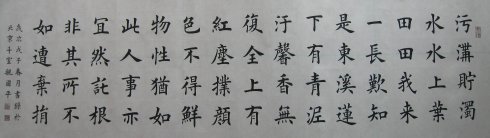 污溝貯濁
水水上葉
田田我來
一長歎知
是東溪蓮
下有青泥
汙馨香無
復全上有
紅塵撲顏
色不得鮮
物性猶如
此人事亦
宜然託根
非其所不
如遭棄捐
歲次戊子春月書於
北京斗室 國平